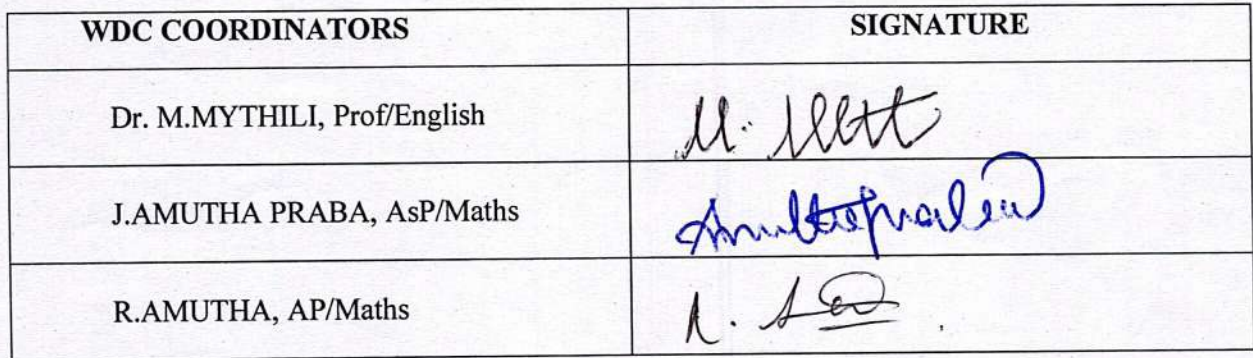 WDC COORDINATORS SIGNATURE
Dr. M.MYTHILI, Prof/English
J.AMUTHA PRABA, AsP/Maths
R.AMUTHA, AP/Maths